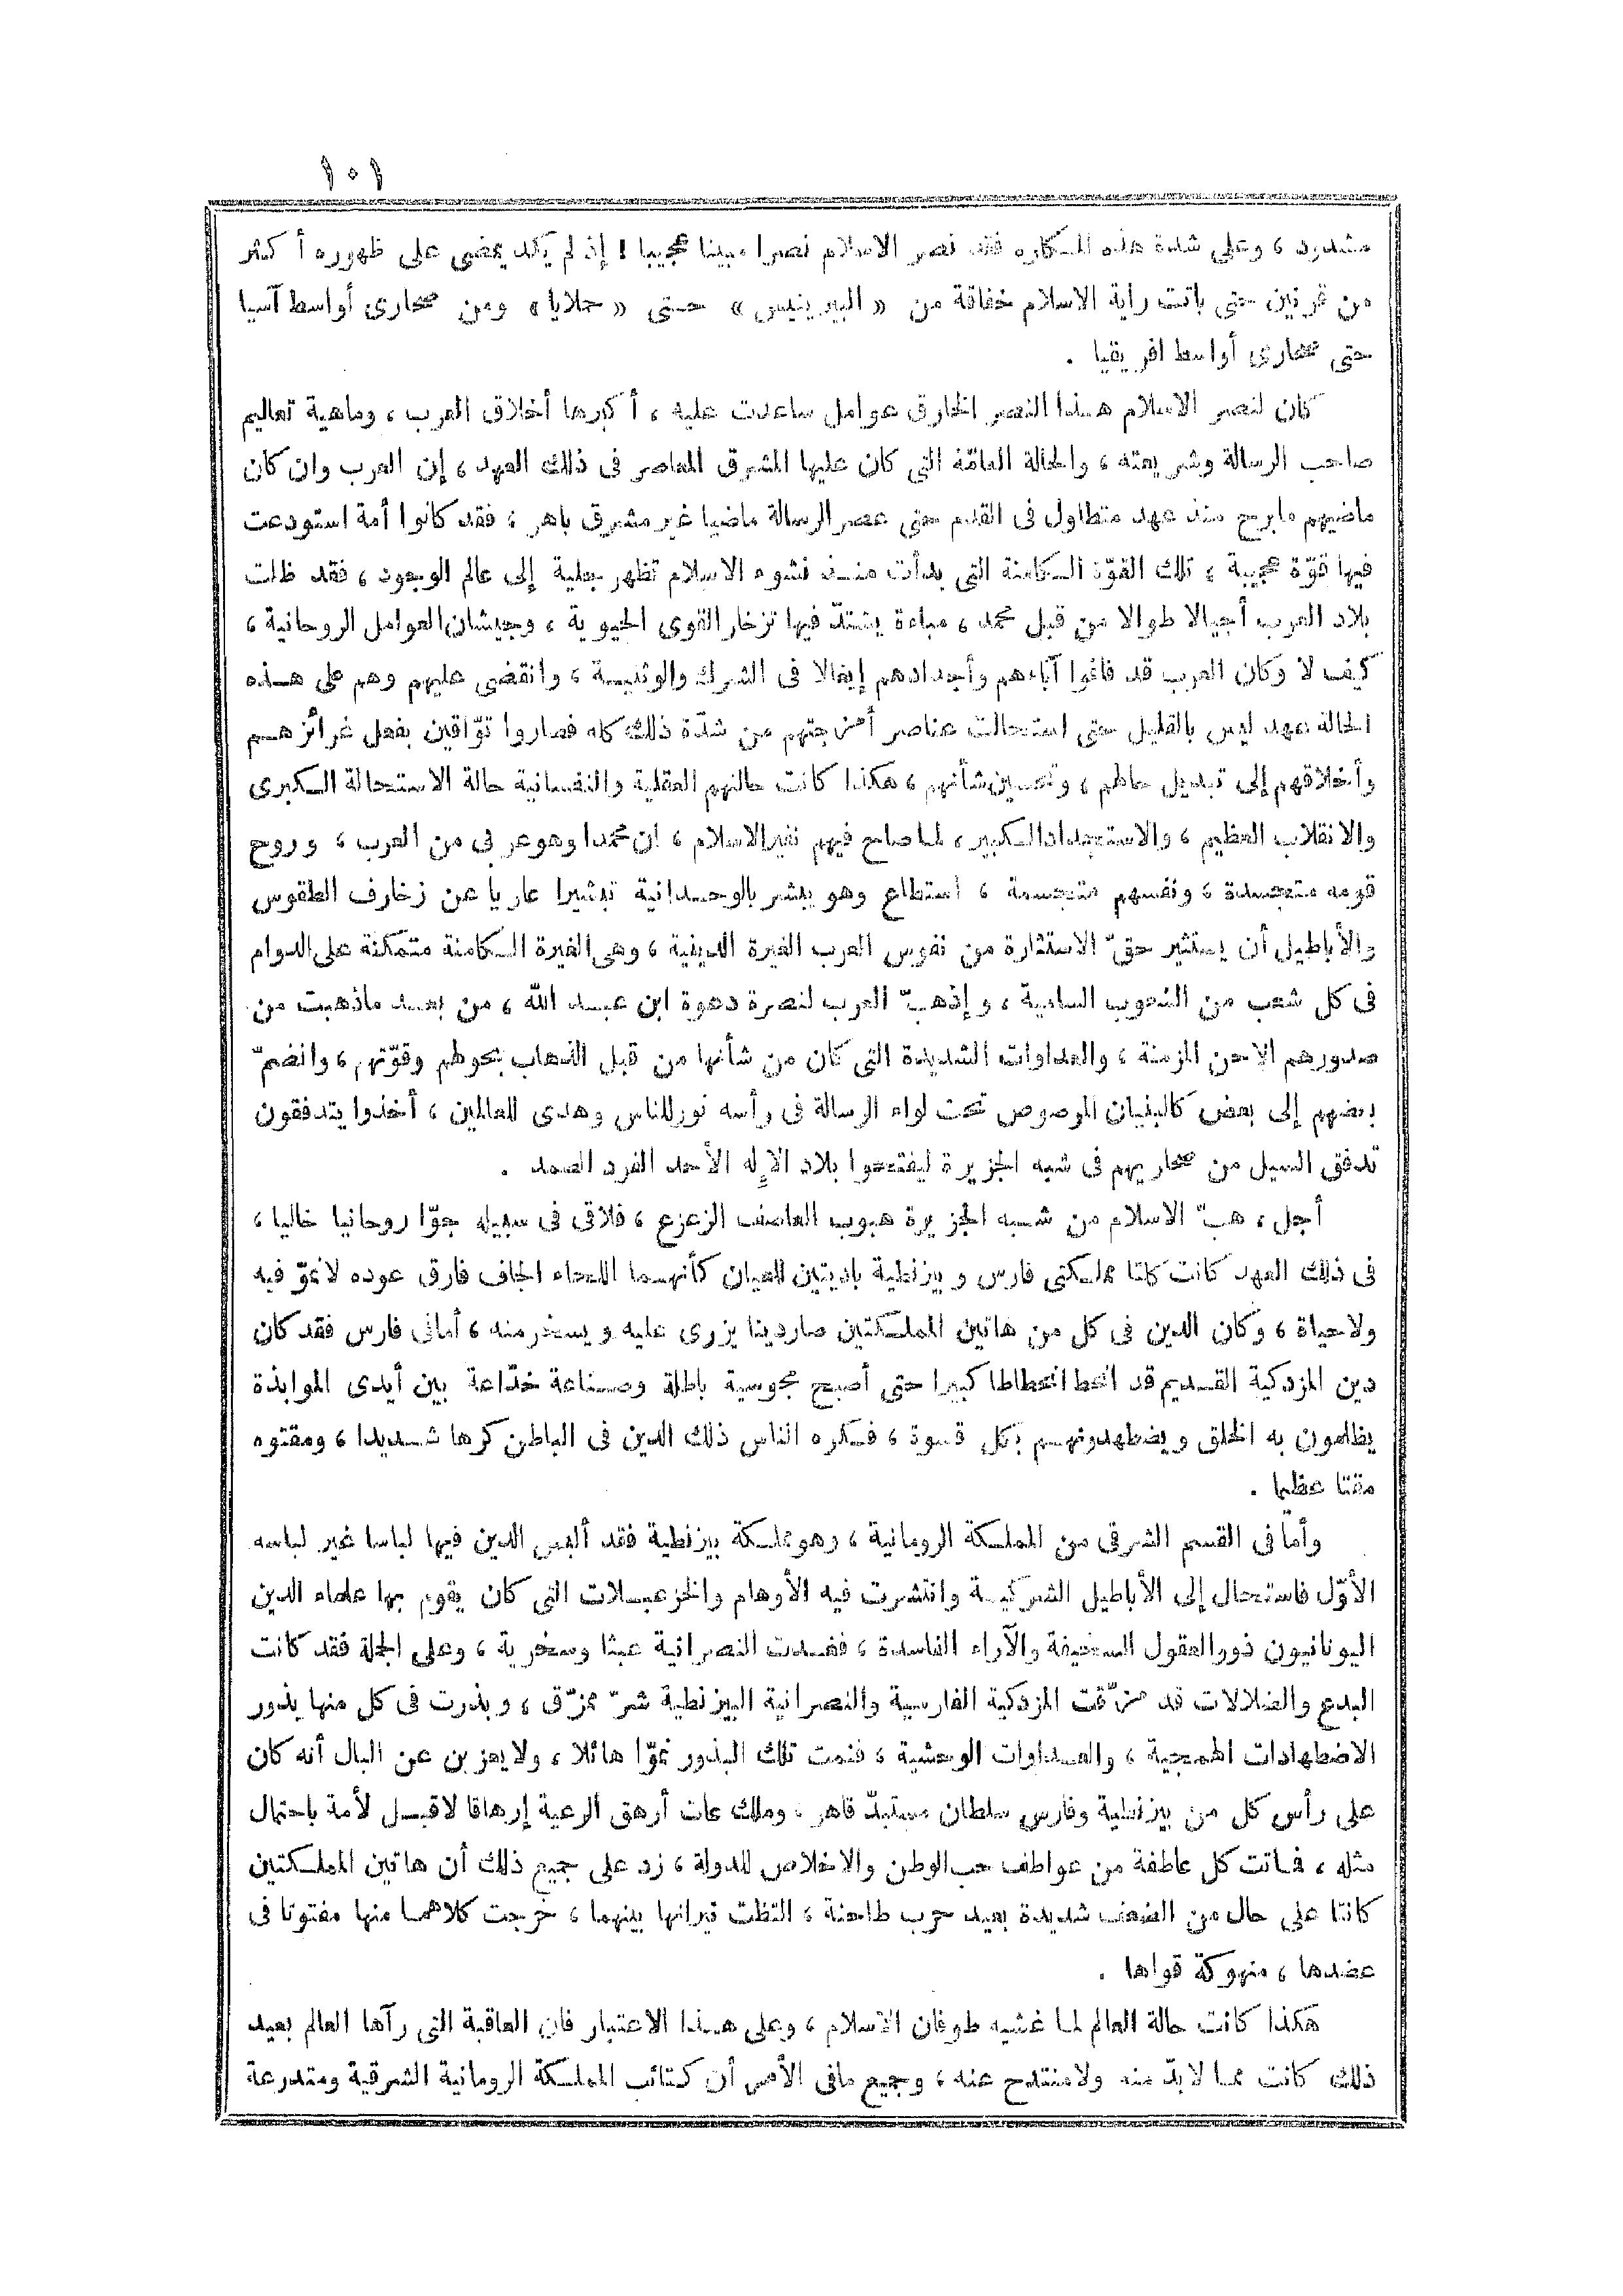 ١٥١
مشدود ، وعلى شدة هذه المكاره فقد نصر الاسلام نصرا مبينا عجيبا ! إذ لم يكد يمضى على ظهوره أكثر
من قرنين حتى باتت راية الاسلام خفاقة من « البيرينيس » حتى « حملايا » ومن صحارى أواسط آسيا
حتى صحارى أواسط افريقيا .
كان لنصر الاسلام هذا النصر الخارق عوامل ساعدت عليه ، أكبرها أخلاق العرب ، وماهية تعاليم
صاحب الرسالة وشريعته ، والحالة العامّة التى كان عليها المشرق المعاصر فى ذلك العهد ، إن العرب وان كان
ماضيهم مابرح منذ عهد متطاول فى القدم حتى عصر الرسالة ماضيا غير مشرق باهر ، فقد كانوا أمة استودعت
فيها قوّة عجيبة ، تلك القوّة الكامنة التى بدأت منذ نشوء الاسلام تظهر جلية إلى عالم الوجود ، فقد ظلت
بلاد العرب أجيالا طوالا من قبل محمد ، مباءة يشتدّ فيها تزخار القوى الحيوية ، وجيشان العوامل الروحانية ،
كيف لا وكان العرب قد فاقوا آباءهم وأجدادهم إيغالا فى الشرك والوثنية ، وانقضى عليهم وهم على هذه
الحالة عهد ليس بالقليل حتى استحالت عناصر أمزجتهم من شدّة ذلك كله فصاروا توّاقين بفعل غرائزهم
وأخلاقهم إلى تبديل حالهم ، وتحسين شأنهم ، هكذا كانت حالتهم العقلية والنفسانية حالة الاستحالة الكبرى
والانقلاب العظيم ، والاستعداد الكبير ، لما صاح فيهم نفير الاسلام ، ان محمدا وهو عربى من العرب ، وروح
قومه متجسدة ، ونفسهم متجسمة ، استطاع وهو يبشر بالوحدانية تبشيرا عاريا عن زخارف الطقوس
والأباطيل أن يستثير حقّ الاستثارة من نفوس العرب الغيرة الدينية ، وهى الغيرة الكامنة متمكنة على الدوام
فى كل شعب من الشعوب السامية ، وإذ هبّ العرب لنصرة دعوة ابن عبد الله ، من بعد ماذهبت من
صدورهم الاحن المزمنة ، والعداوات الشديدة التى كان من شأنها من قبل الذهاب بحولهم وقوّتهم ، وانضمّ
بعضهم إلى بعض كالبنيان المرصوص تحت لواء الرسالة فى رأسه نور للناس وهدى للعالمين ، أخذوا يتدفقون
تدفق السيل من صحاريهم فى شبه الجزيرة ليفتحوا بلاد الإله الأحد الفرد الصمد .
أجل ، هبّ الاسلام من شبه الجزيرة هبوب العاصف الزعزع ، فلاقى فى سبيله جوّا روحانيا خاليا ،
فى ذلك العهد كانت كلتا مملكتى فارس وبيزنطية باديتين للعيان كأنهما اللحاء الجاف فارق عوده لانموّ فيه
ولاحياة ، وكان الدين فى كل من هاتين المملكتين صار دينا يزرى عليه ويسخر منه ، أمافى فارس فقد كان
دين المزدكية القديم قد انحط انحطاطا كبيرا حتى أصبح مجوسية باطلة وصناعة خدّاعة بين أيدى الموابذة
يظلمون به الخلق ويضطهدونهم بكل قسوة ، فكره الناس ذلك الدين فى الباطن كرها شديدا ، ومقتوه
مقتا عظيما .
وأمّا فى القسم الشرقى من المملكة الرومانية ، وهو مملكة بيزنطية فقد ألبس الدين فيها لباسا غير لباسه
الأوّل فاستحال إلى الأباطيل الشركية وانتشرت فيه الأوهام والخزعبلات التى كان يقوم بها علماء الدين
اليونانيون ذوو العقول السخيفة والآراء الفاسدة ، فغدت النصرانية عبثا وسخرية ، وعلى الجملة فقد كانت
البدع والضلالات قد مزّقت المزدكية الفارسية والنصرانية البيزنطية شرّ ممزّق ، وبذرت فى كل منها بذور
الاضطهادات الهمجية ، والعداوات الوحشية ، فنمت تلك البذور نموّا هائلا ، ولايعزبن عن البال أنه كان
على رأس كل من بيزنطية وفارس سلطان مستبدّ قاهر ، وملك عات أرهق الرعية إرهاقا لاقبل لأمة باحتمال
مثله ، فماتت كل عاطفة من عواطف حب الوطن والاخلاص للدولة ، زد على جميع ذلك أن هاتين المملكتين
كانتا على حال من الضعف شديدة بعيد حرب طاحنة ، التظت نيرانها بينهما ، خرجت كلاهما منها مفتوتا فى
عضدها ، منهوكة قواها .
هكذا كانت حالة العالم لما غشيه طوفان الاسلام ، وعلى هذا الاعتبار فان العاقبة التى رآها العالم بعيد
ذلك كانت مما لابدّ منه ولامنتدح عنه ، وجميع مافى الأمر أن كتائب المملكة الرومانية الشرقية ومتدرعة